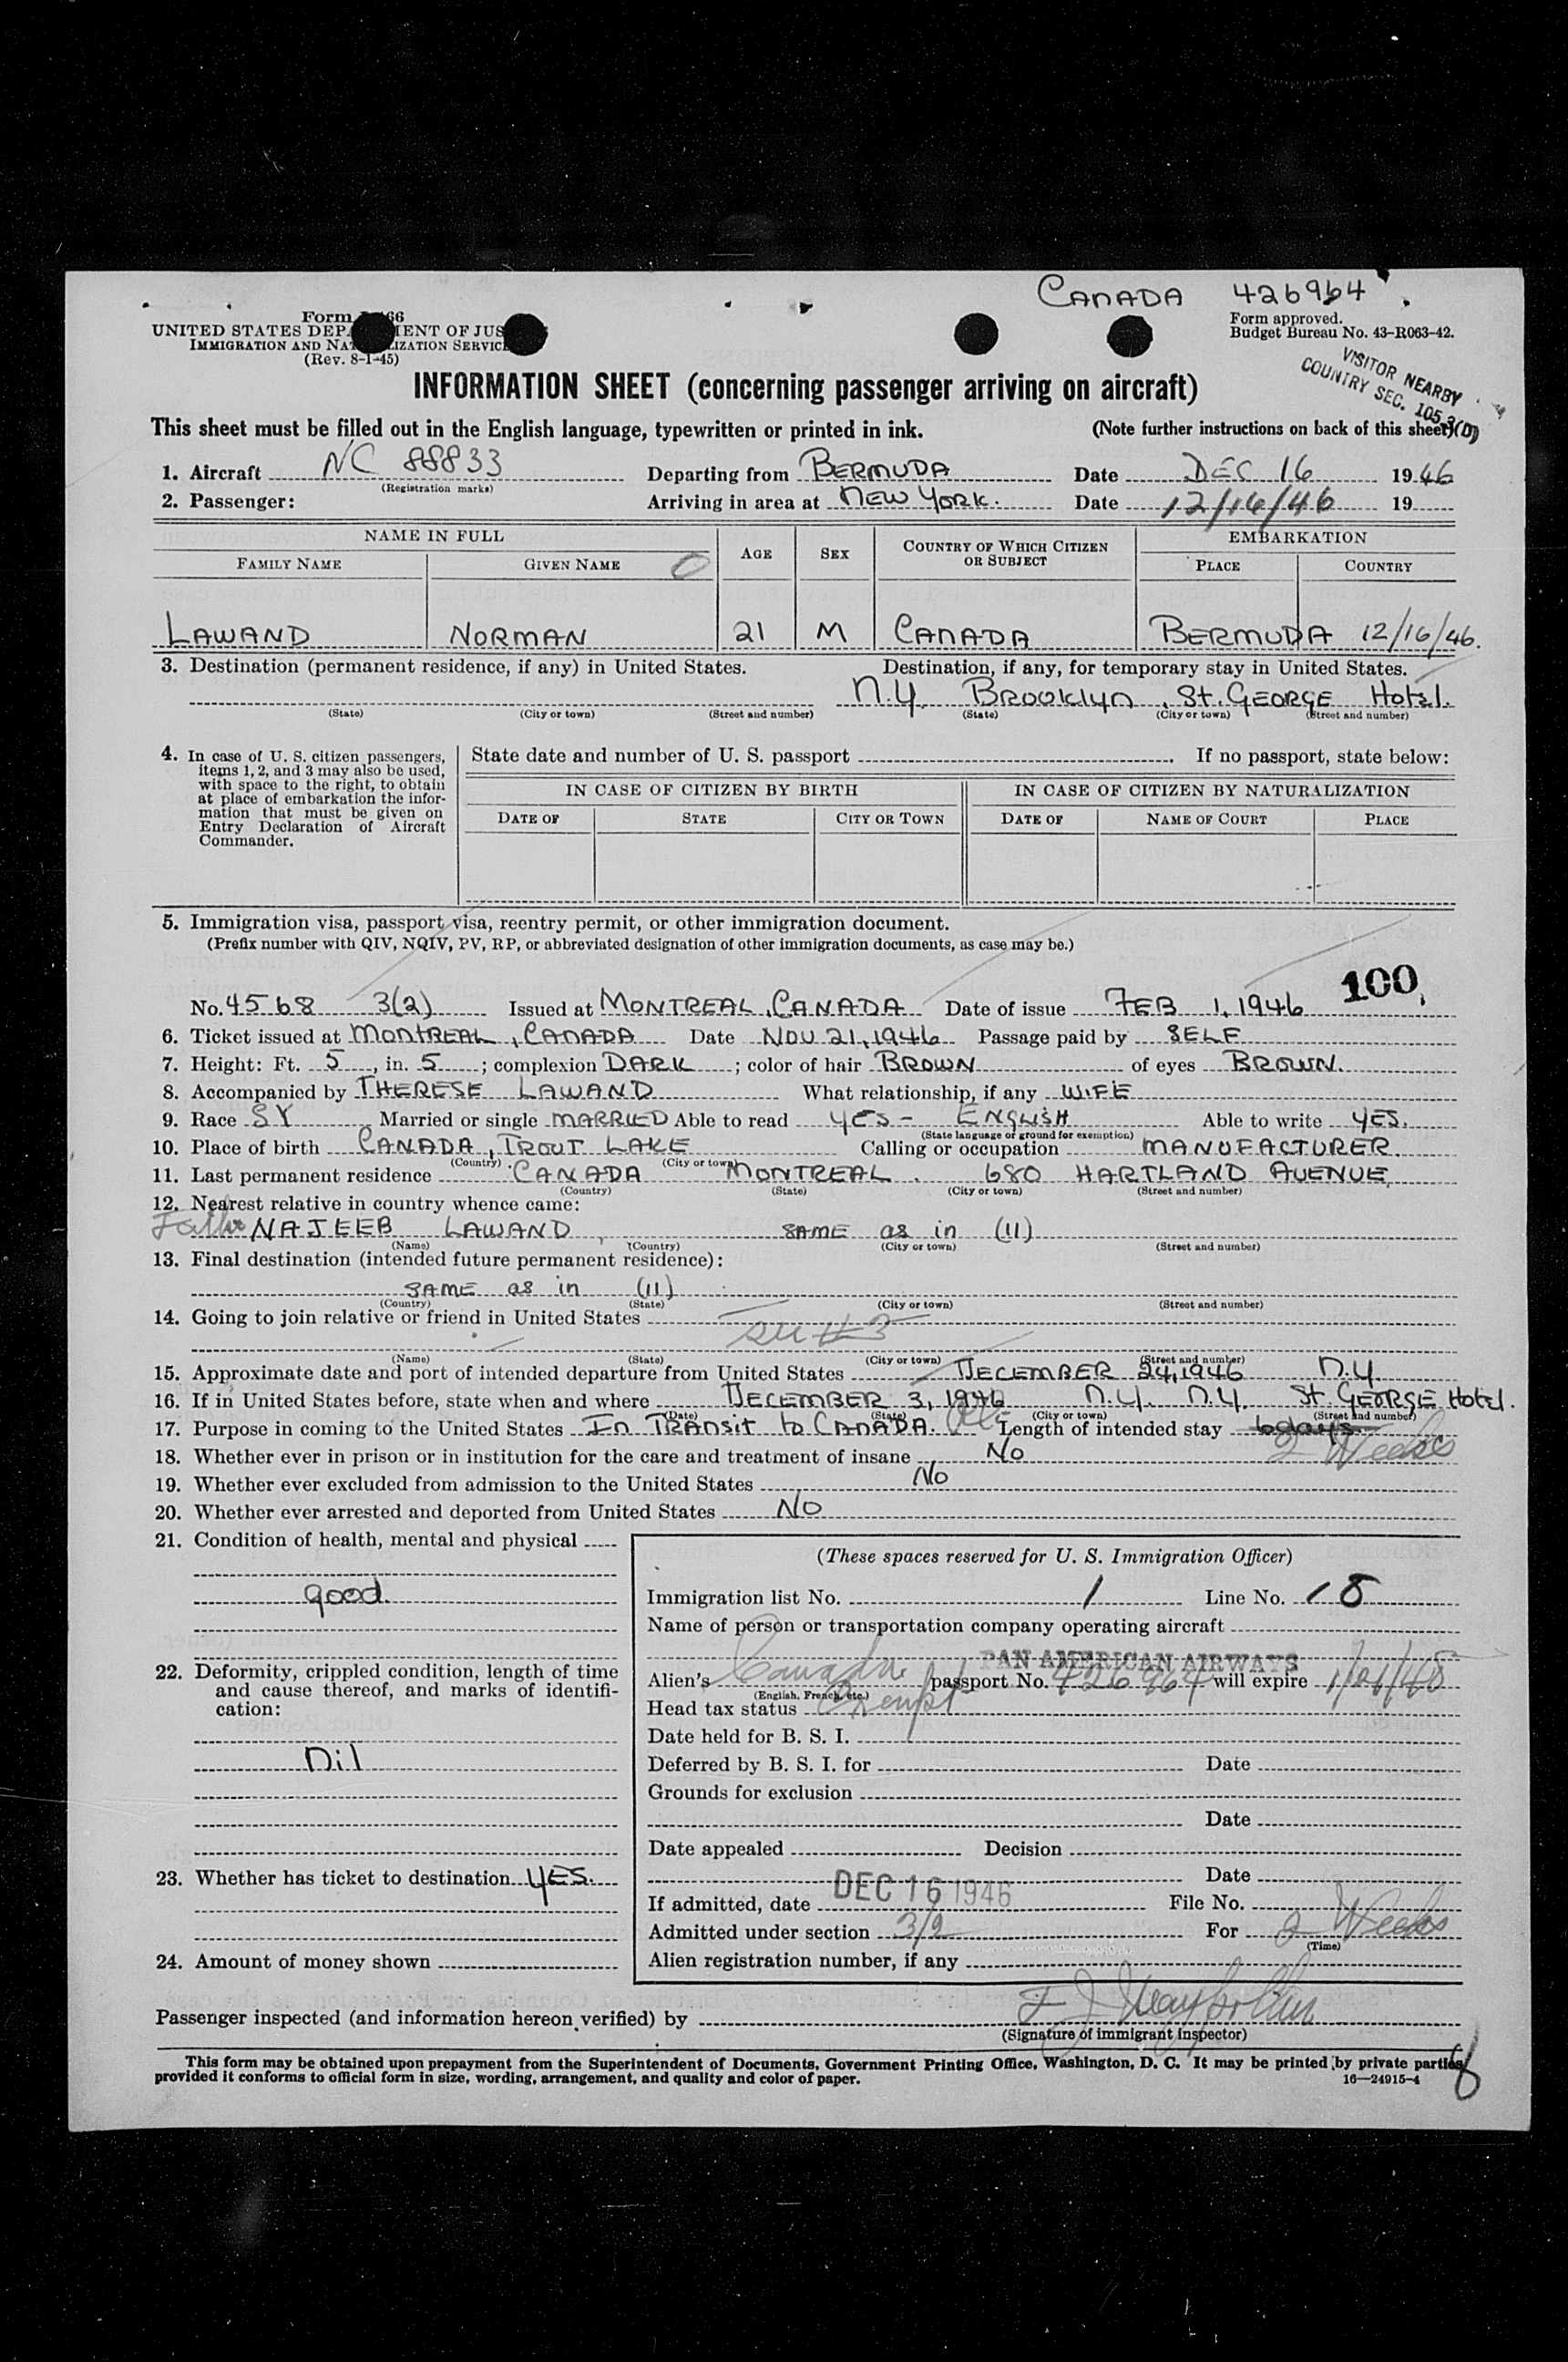 CANADA 426964
Form I-466
UNITED STATES DEPARTMENT OF JUSTICE
IMMIGRATION AND NATURALIZATION SERVICE
(Rev. 8-1-45)
Form approved.
Budget Bureau No. 43-R063-42.
VISITOR NEARBY
COUNTRY SEC. 105.3(D)
INFORMATION SHEET (concerning passenger arriving on aircraft)
This sheet must be filled out in the English language, typewritten or printed in ink. (Note further instructions on back of this sheet)
1. Aircraft NC 88833 Departing from BERMUDA Date DEC 16 1946
(Registration marks)
2. Passenger: Arriving in area at NEW YORK. Date 12/16/46 19
NAME IN FULL AGE SEX COUNTRY OF WHICH CITIZEN OR SUBJECT EMBARKATION
FAMILY NAME GIVEN NAME PLACE COUNTRY
LAWAND NORMAN 21 M CANADA BERMUDA 12/16/46.
3. Destination (permanent residence, if any) in United States. Destination, if any, for temporary stay in United States.
N.Y. BROOKLYN, St. GEORGE Hotel.
(State) (City or town) (Street and number) (State) (City or town) (Street and number)
4. In case of U. S. citizen passengers, items 1, 2, and 3 may also be used, with space to the right, to obtain at place of embarkation the information that must be given on Entry Declaration of Aircraft Commander.
State date and number of U. S. passport If no passport, state below:
IN CASE OF CITIZEN BY BIRTH IN CASE OF CITIZEN BY NATURALIZATION
DATE OF STATE CITY OR TOWN DATE OF NAME OF COURT PLACE
5. Immigration visa, passport visa, reentry permit, or other immigration document.
(Prefix number with QIV, NQIV, PV, RP, or abbreviated designation of other immigration documents, as case may be.)
100
No. 4568 3(2) Issued at MONTREAL, CANADA Date of issue FEB 1, 1946
6. Ticket issued at MONTREAL, CANADA Date NOV 21, 1946 Passage paid by SELF
7. Height: Ft. 5, in. 5; complexion DARK; color of hair BROWN of eyes BROWN.
8. Accompanied by THERESE LAWAND What relationship, if any WIFE
9. Race SY Married or single MARRIED Able to read YES - ENGLISH Able to write YES.
(State language or ground for exemption)
10. Place of birth CANADA, TROUT LAKE Calling or occupation MANUFACTURER.
(Country) (City or town)
11. Last permanent residence CANADA MONTREAL. 680 HARTLAND AVENUE
(Country) (State) (City or town) (Street and number)
12. Nearest relative in country whence came:
Father NAJEEB LAWAND, SAME as in (11)
(Name) (Country) (City or town) (Street and number)
13. Final destination (intended future permanent residence):
SAME as in (11)
(Country) (State) (City or town) (Street and number)
14. Going to join relative or friend in United States
see #3
(Name) (State) (City or town) (Street and number)
15. Approximate date and port of intended departure from United States DECEMBER 24, 1946 N.Y.
16. If in United States before, state when and where DECEMBER 3, 1946 N.Y. N.Y. St. GEORGE Hotel.
(Date) (State) (City or town) (Street and number)
17. Purpose in coming to the United States In TRANSIT to CANADA. Length of intended stay 6 days
2 Weeks
18. Whether ever in prison or in institution for the care and treatment of insane No
19. Whether ever excluded from admission to the United States No
20. Whether ever arrested and deported from United States No
21. Condition of health, mental and physical
good.
22. Deformity, crippled condition, length of time and cause thereof, and marks of identification:
Nil
23. Whether has ticket to destination YES.
24. Amount of money shown
(These spaces reserved for U. S. Immigration Officer)
Immigration list No. 1 Line No. 18
Name of person or transportation company operating aircraft
PAN AMERICAN AIRWAYS
Alien's Canada passport No. 426964 will expire 1/21/48
(English, French, etc.)
Head tax status Exempt
Date held for B. S. I.
Deferred by B. S. I. for Date
Grounds for exclusion
Date
Date appealed Decision
Date
If admitted, date DEC 16 1946 File No.
Admitted under section 3/2 For 2 Weeks
(Time)
Alien registration number, if any
Passenger inspected (and information hereon verified) by
(Signature of immigrant inspector)
This form may be obtained upon prepayment from the Superintendent of Documents, Government Printing Office, Washington, D. C. It may be printed by private parties
provided it conforms to official form in size, wording, arrangement, and quality and color of paper. 16—24915-4